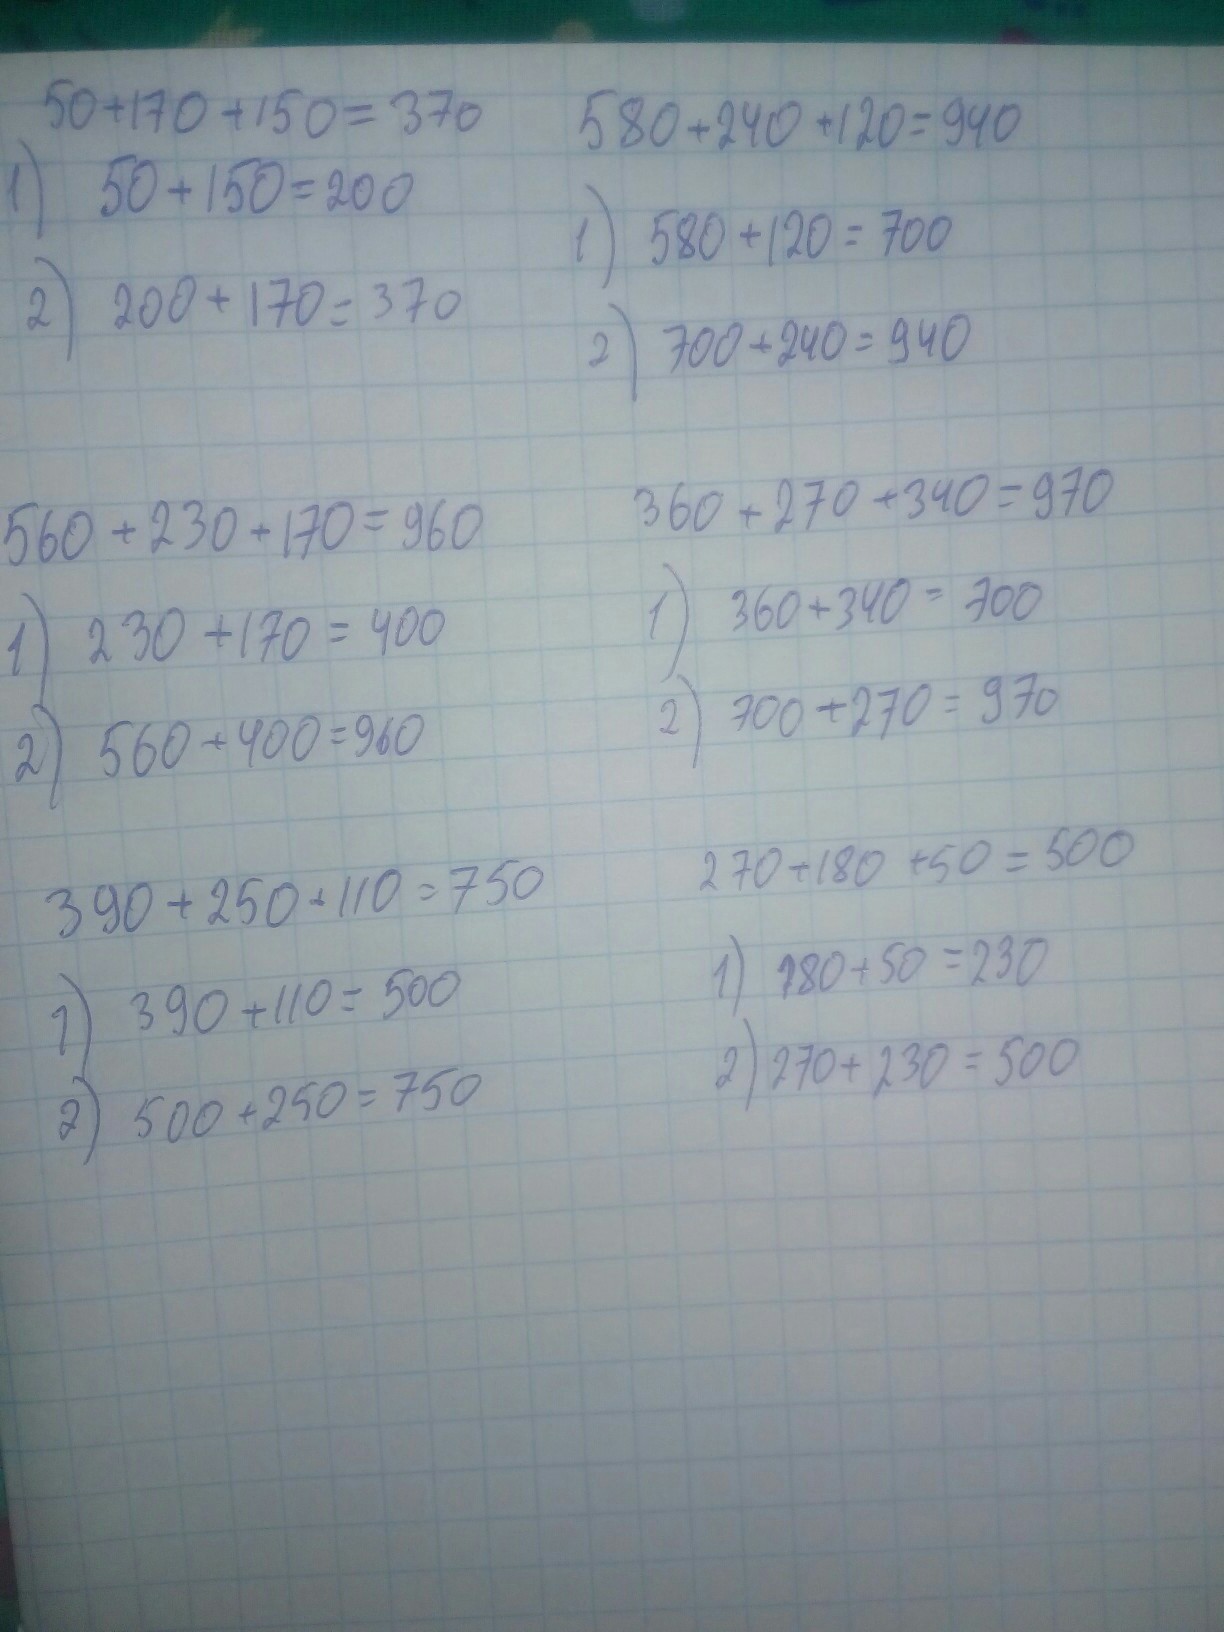 50+170+150=370
1) 50+150=200
2) 200+170=370
580+240+120=940
1) 580+120=700
2) 700+240=940
560+230+170=960
1) 230+170=400
2) 560+400=960
360+270+340=970
1) 360+340=700
2) 700+270=970
390+250+110=750
1) 390+110=500
2) 500+250=750
270+180+50=500
1) 180+50=230
2) 270+230=500